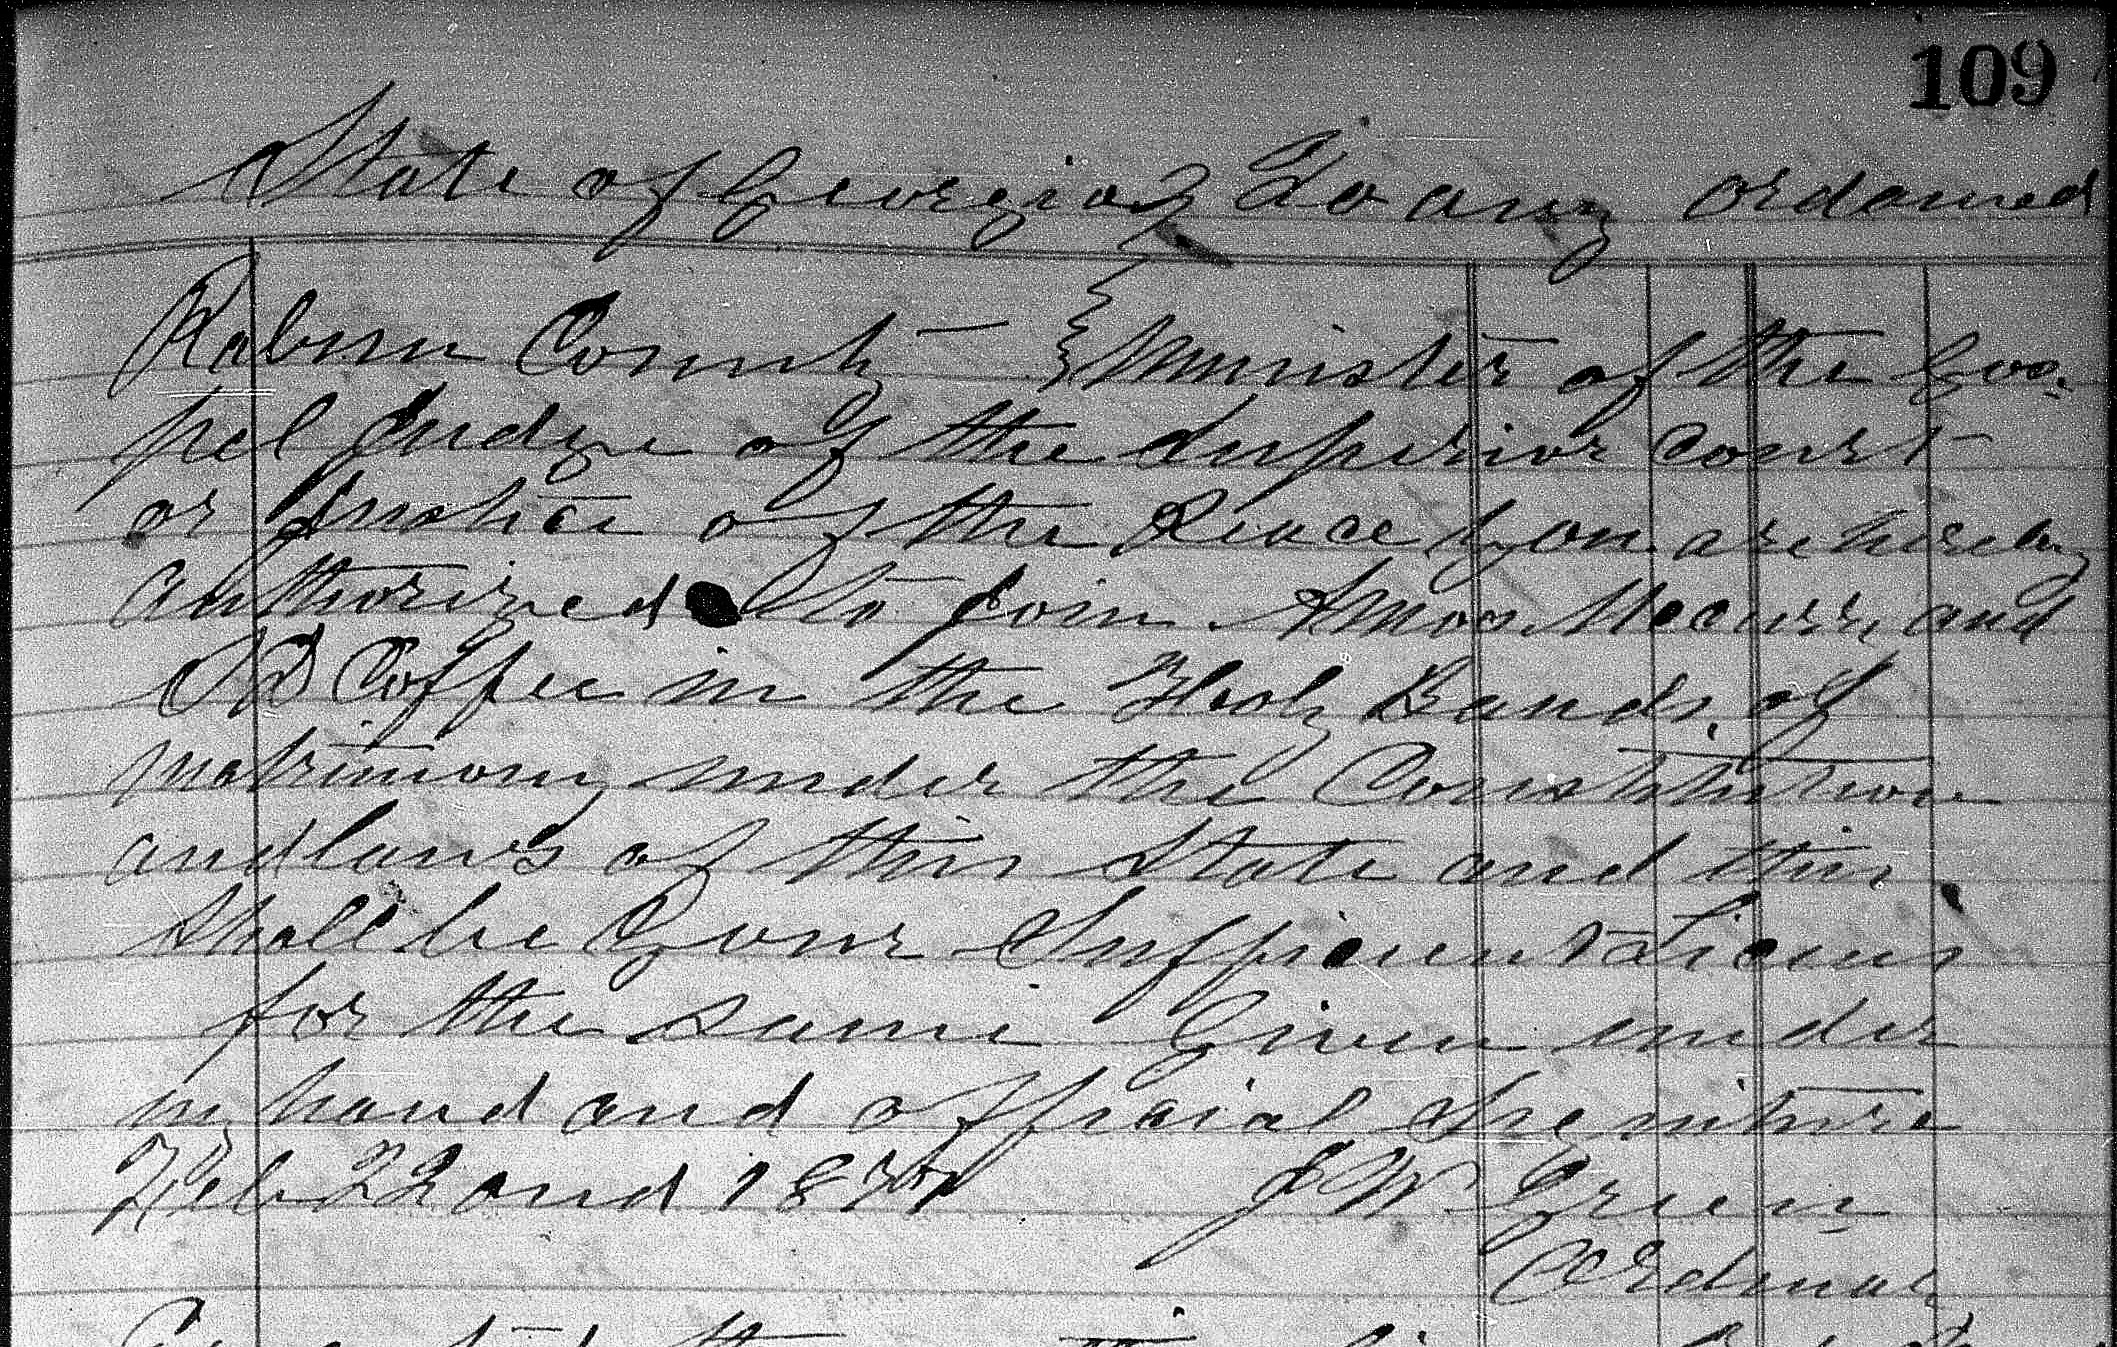 109
State of Georgia } To any ordained
Rabun County — } Minister of the Gos-
pel Judge of the Superior Court
or Justice of the Peace you are hereby
authorized to Join Amos Mccurry and
Coffee in the Holy Bands of
matrimony under the Constitution
and laws of this State and this
Shall be your Sufficient Licens
for the same Given under
my hand and official Signiture
Feb 22ond J W Green
Ordinary